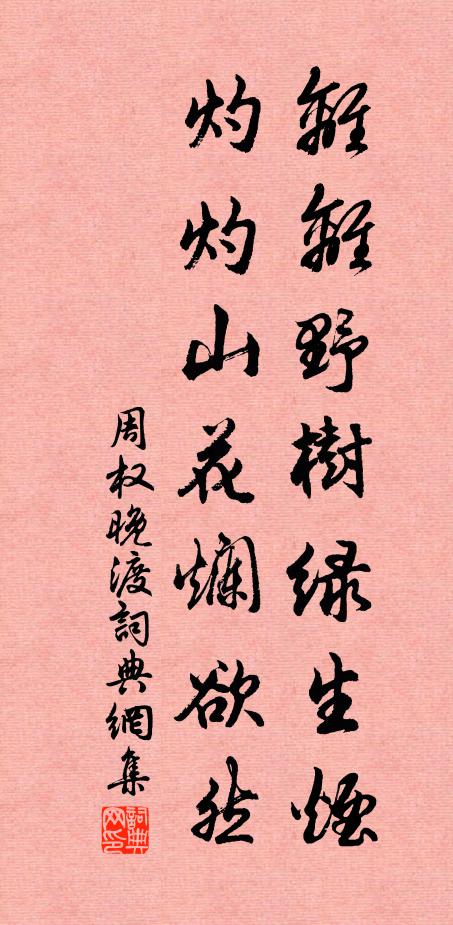 離離野樹綠生煙
灼灼山花爛欲然
周权晚渡詞典網集
詞典网印